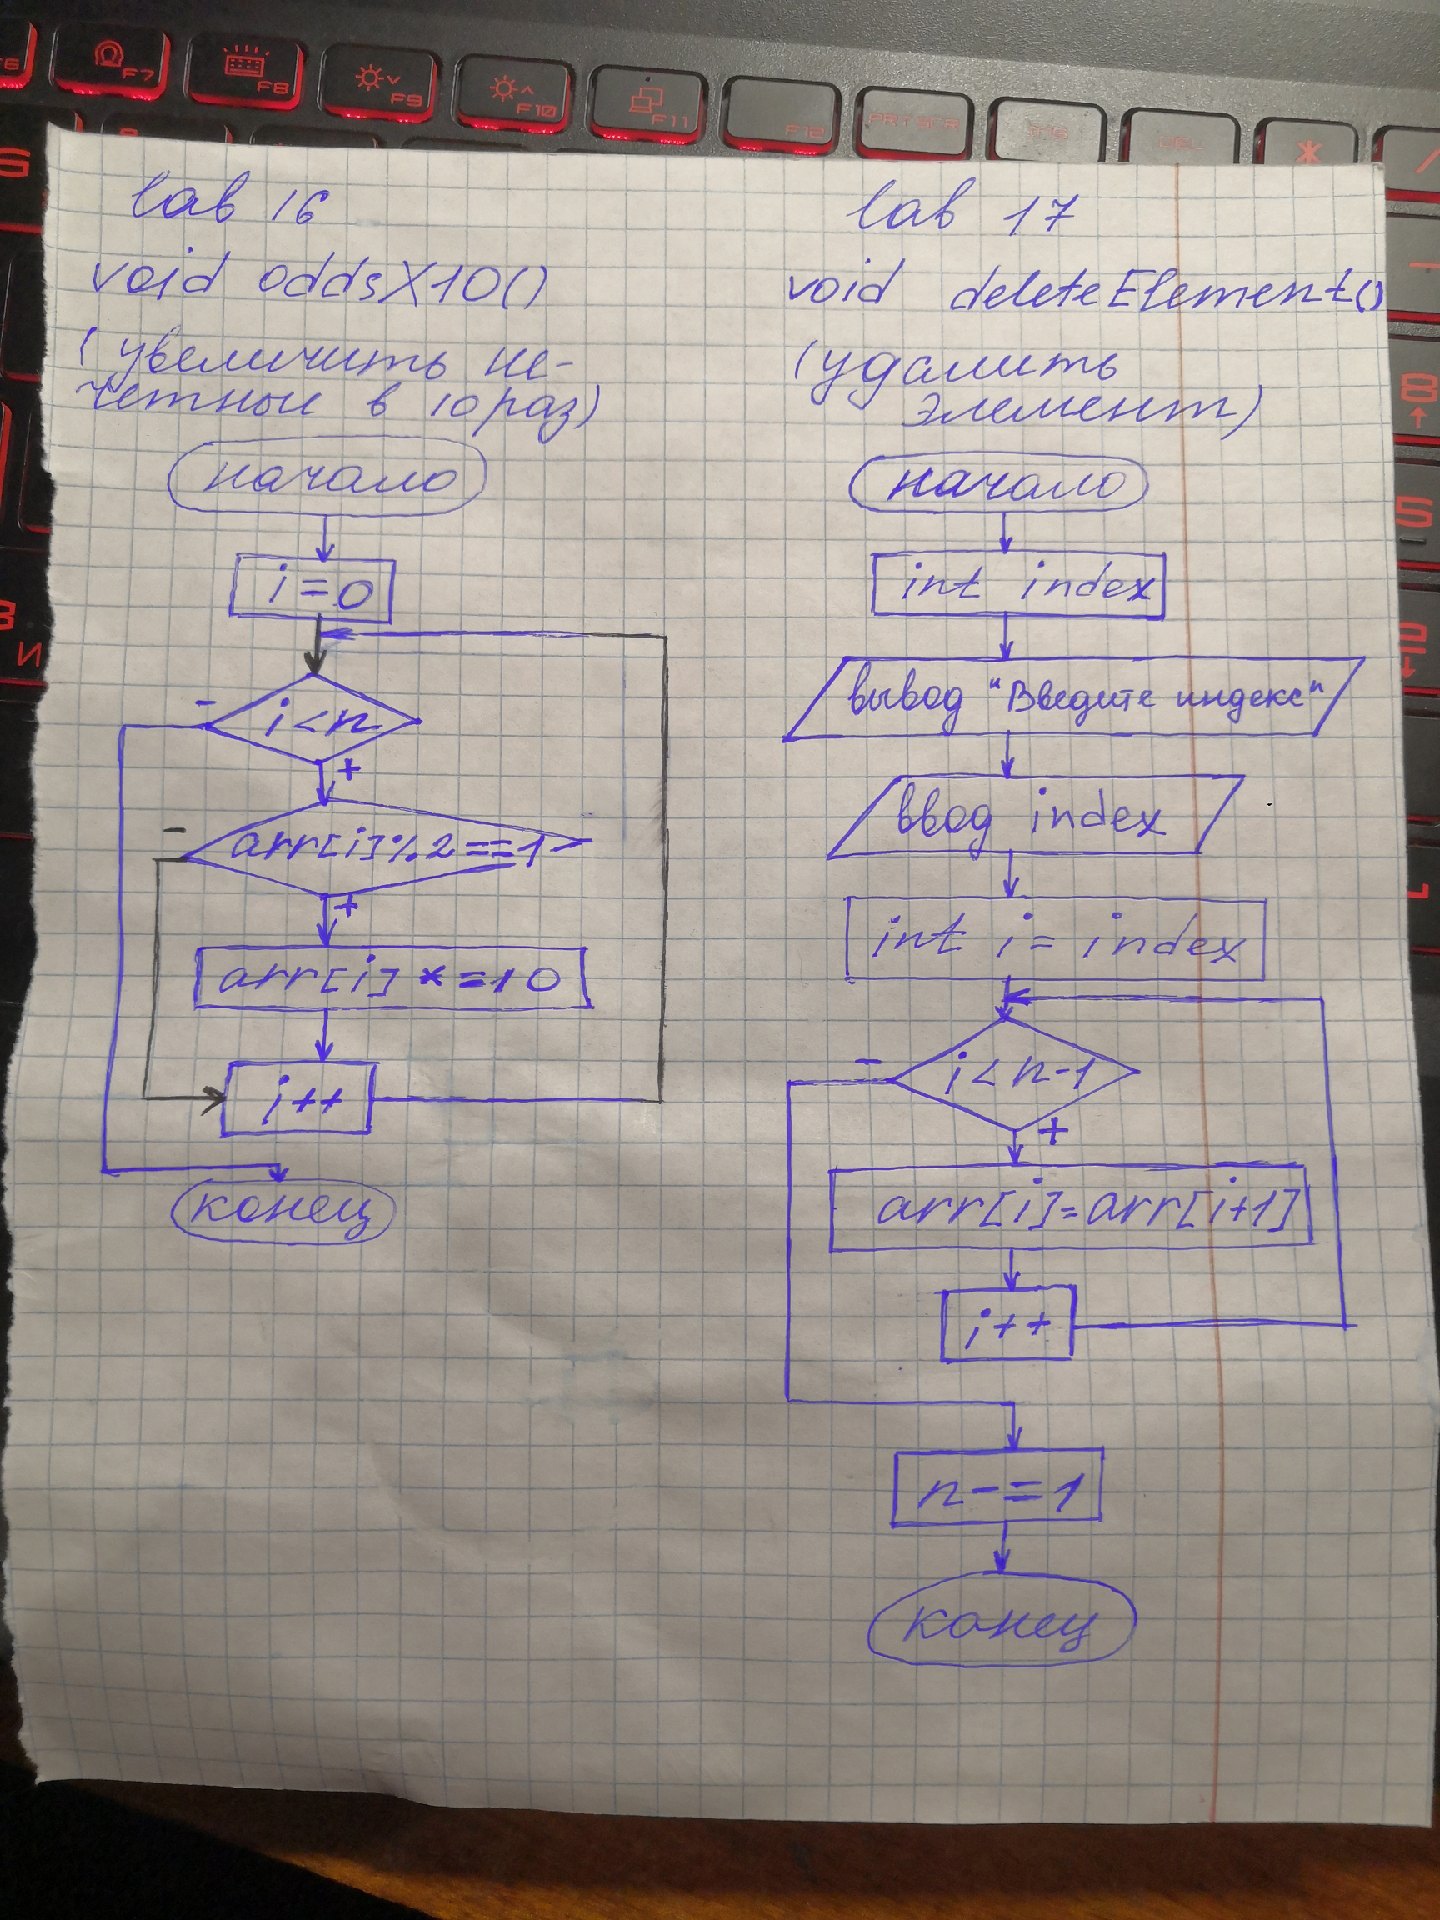 F7
F8
F9
F10
F11
F12
PRTSCR
lab 16
void oddsX10()
(увеличить не-
четные в 10 раз)
начало
i=0
i<n
-
+
arr[i]%2==1
-
+
arr[i]*=10
i++
конец
lab 17
void deleteElement()
(удалить
элемент)
начало
int index
вывод "Введите индекс"
ввод index
int i = index
i<n-1
-
+
arr[i]=arr[i+1]
i++
n-=1
конец